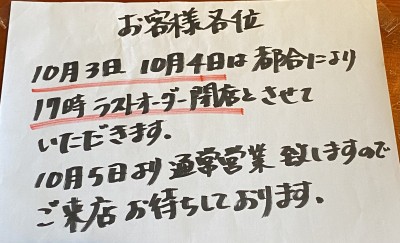 お客様各位
10月3日 10月4日は都合により
17時 ラストオーダー閉店とさせて
いただきます.
10月5日より 通常営業 致しますので
ご来店 お待ちしております.